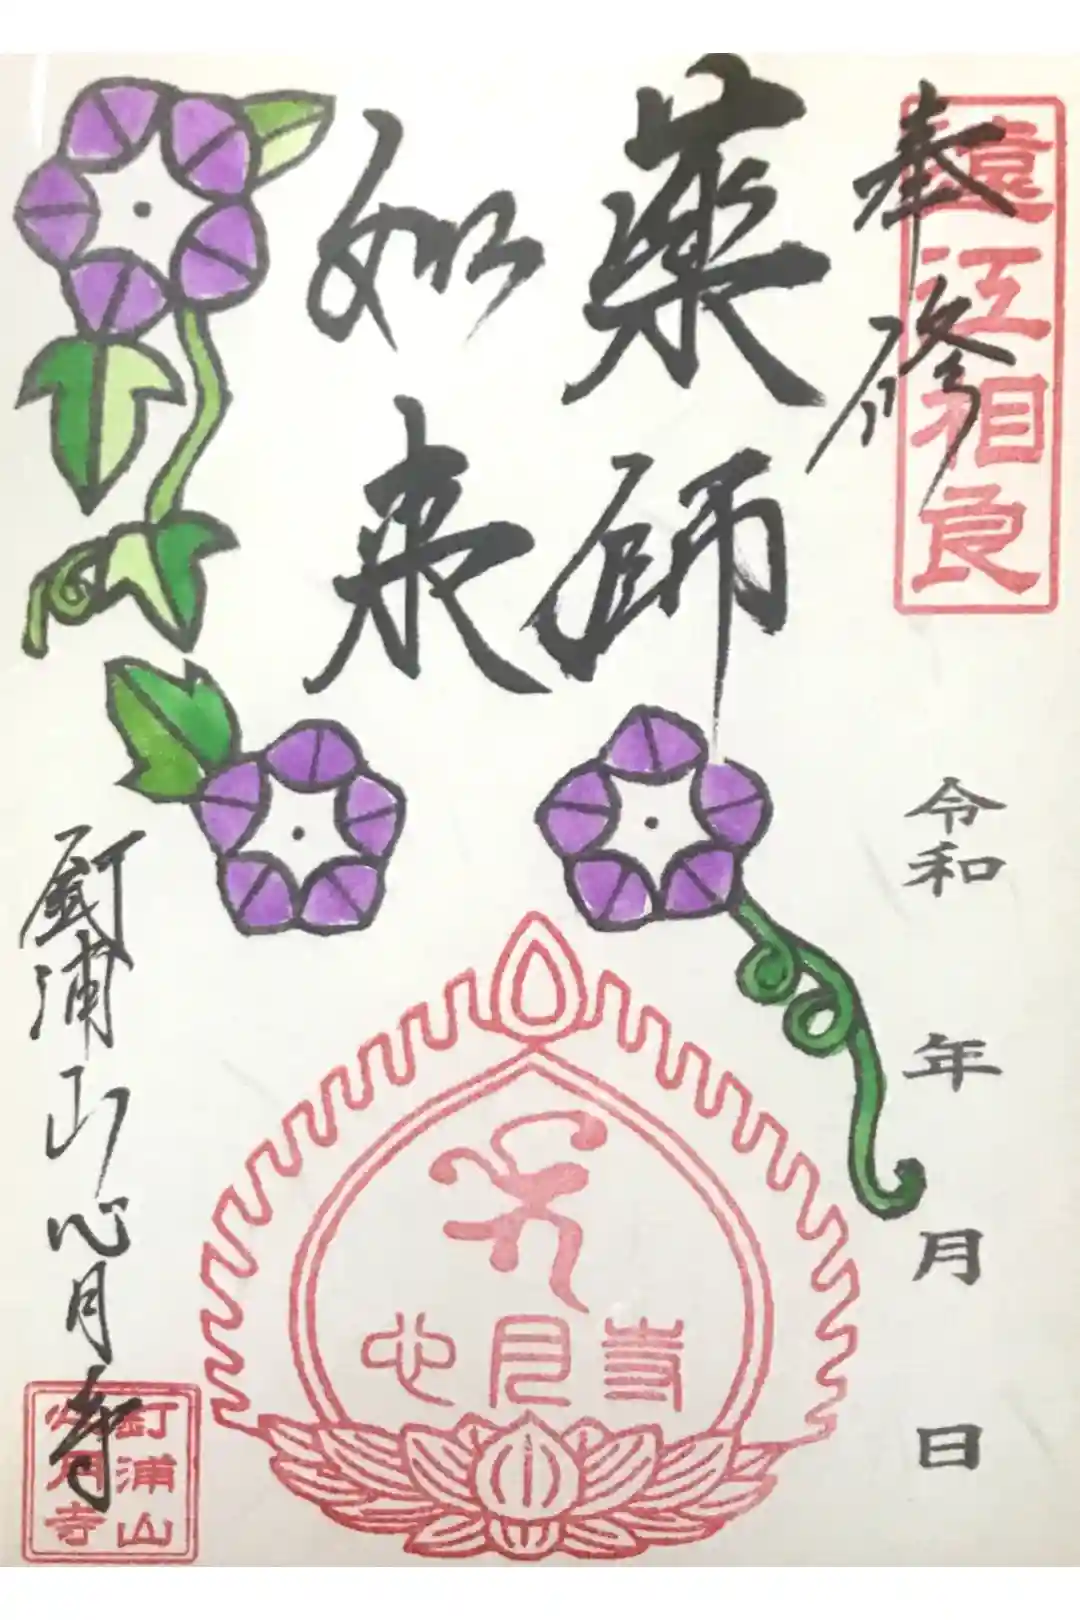 奉修
遠江相良
薬師
如来
令和　年　月　日
心月寺
釘浦山心月寺
釘浦山
心月寺